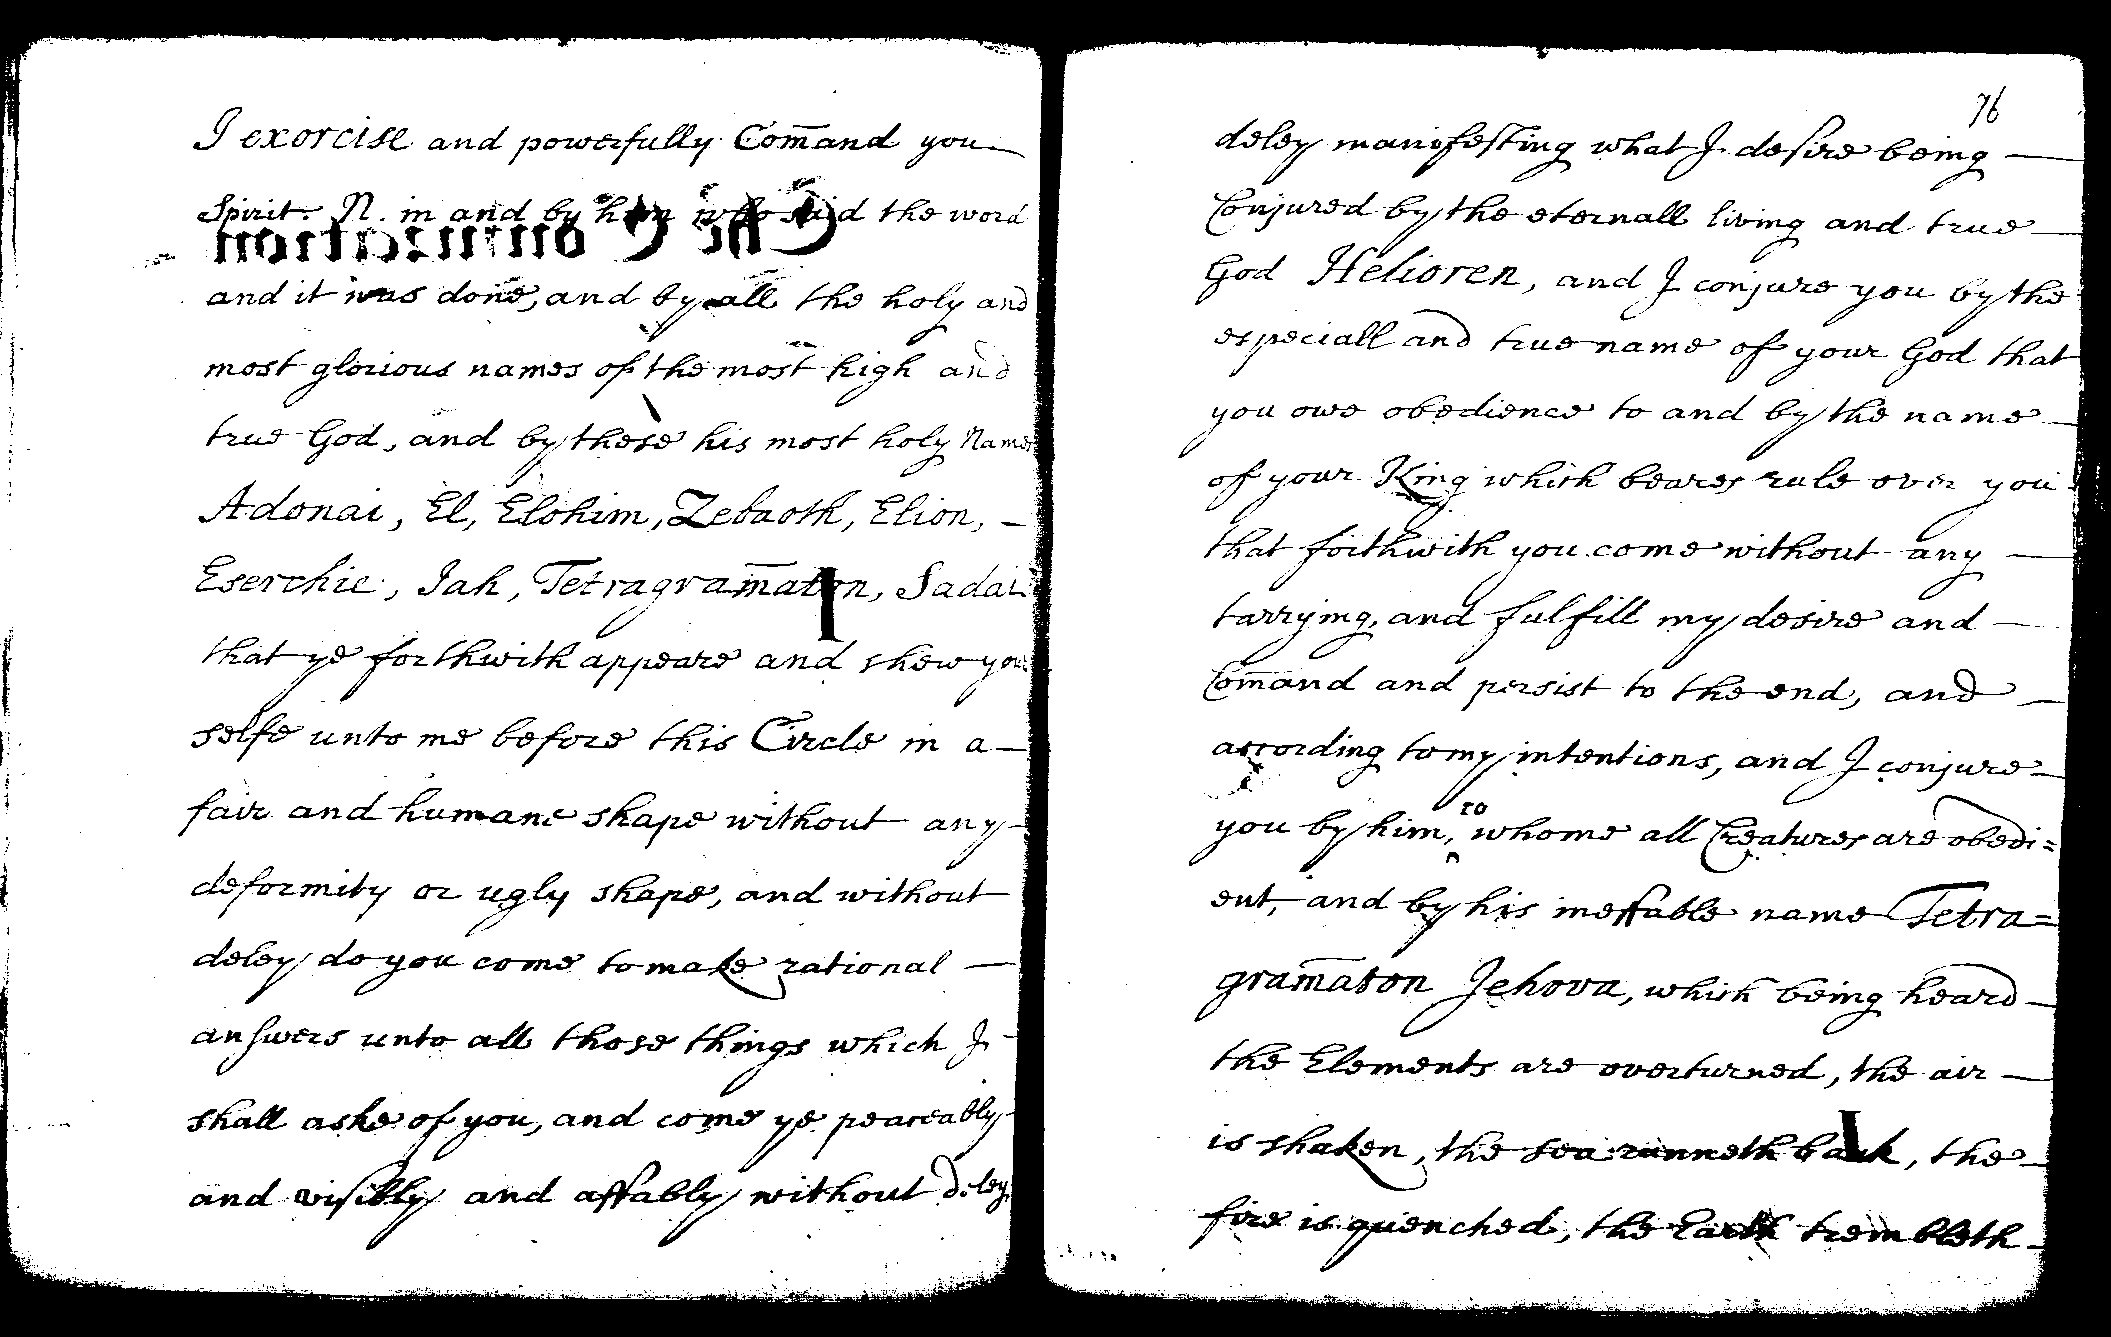 I exorcise and powerfully Com̄and you
Spirit. N. in and by him who said the word
and it was done, and by all the holy and
most glorious names of the most high and
true God, and by these his most holy Names
Adonai, El, Elohim, Zebaoth, Elion,
Eserchie, Jah, Tetragram̄aton, Sadai
that ye forthwith appeare and shew your
selfe unto me before this Circle in a
fair and humane shape without any
deformity or ugly shape, and without
deley do you come to make rational
answers unto all those things which I
shall aske of you, and come ye peaceably
and visibly and affably without deley
76
deley manifesting what I desire being
Conjured by the eternall living and true
God Helioren, and I conjure you by the
especiall and true name of your God that
you owe obedience to and by the name
of your King which beares rule over you
that forthwith you come without any
tarrying, and fulfill my desire and
Com̄and and persist to the end, and
according to my intentions, and I conjure
you by him, to whome all Creatures are obedi=
ent, and by his ineffable name Tetra=
gram̄aton Jehova, which being heard
the Elements are overturned, the air
is shaken, the sea runneth back, the
fire is quenched, the Earth trembleth